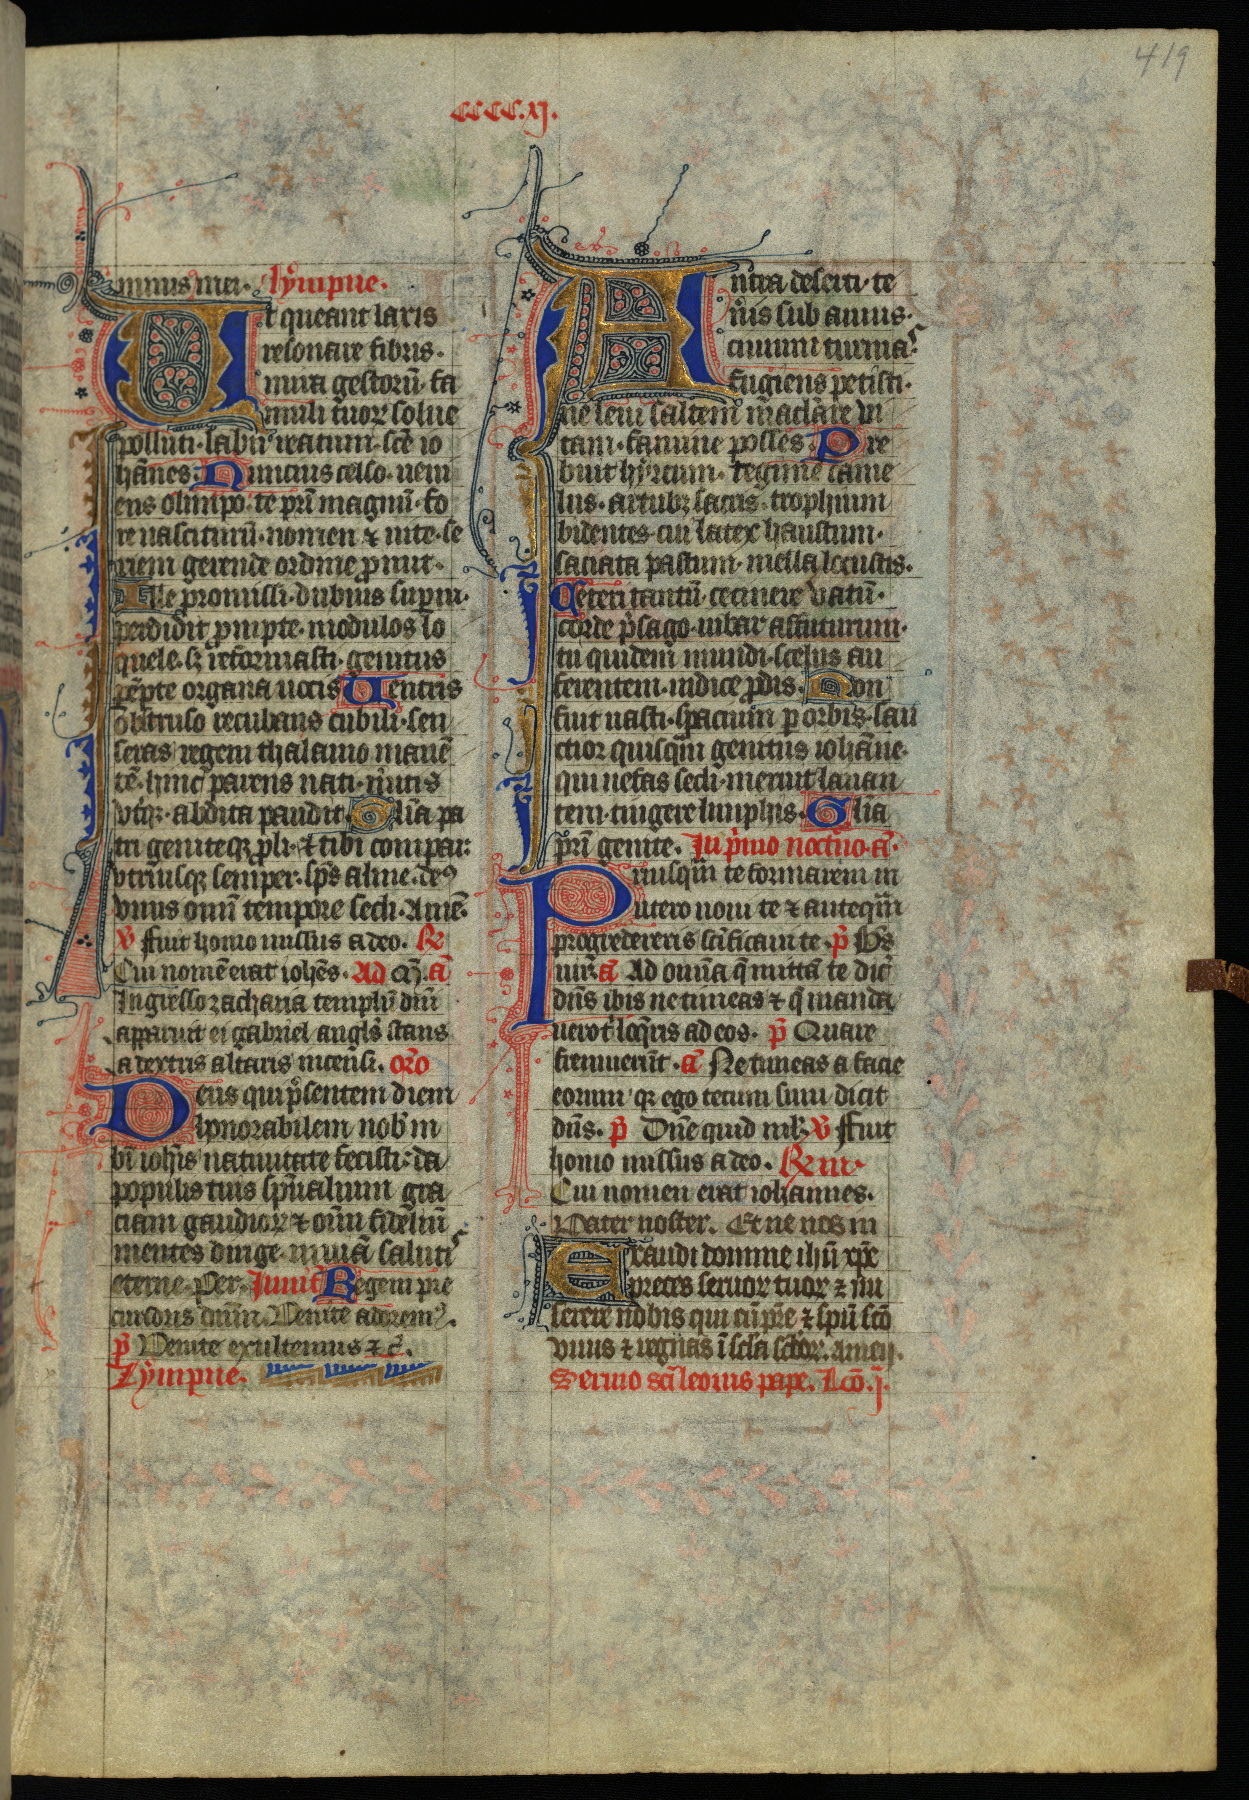 419
CCCC.xj.
minus mei. hympne.
Ut queant laxis
resonare fibris.
mira gestorū. fa
muli tuoꝝ solue
polluti. labii reatum. scē io
hānes. Nuncius celso. ueni
ens olimpo. te pr̄i magnū. fo
re nasciturū. nomen ⁊ uite. se
riem gerende ordine ꝓmit.
Ille promissi. dubius supni.
perdidit ꝓmpte. modulos lo
quele. sꝫ reformasti. genitus
pēpte organa uocis Uentris
obstruso recubans cubili. sen
seras regem thalamo manē
tē. hinc parens nati. mitis
vtꝙ. abdita pandit. Glīa pa
tri geniteqꝫ pli. ⁊ tibi compar.
vtriusqꝫ semper. sps̄ alme. deꝰ
vnus omī tempore secli. Amē.
v̄ ffuit homo missus a deo. ℟
Cui nomē erat ioh̄es. Ad m̄. a̅
Ingresso zacharia templū dn̄i
apparuit ei gabriel angl̄s stans
a dextris altaris incēsi. or̄o
Deus qui p̄sentem diem
honorabilem nob̄ in
bt̄i ioh̄is natiuitate fecisti. da
populis tuis sp̄ualium gra
ciam gaudioꝝ ⁊ om̄i fideliū
mentes dirige. in uiā saluti
eterne. Per. Inuit̄ Regem pre
cursoris dn̄m. Venite adorem⁹.
p̄ Venite exultemus ⁊ c̄.
Zympne.
Antra deserti. te
n̄is sub annis.
ciuium turmas.
fugiens petisti.
ne leui saltem maclare vi
tam. famine posses. Pre
buit hyrtum. tegimē came
lus. artubꝫ sacris. trophium
bidentes. cui latex haustum.
sociata pastum. mella locustis.
Ceteri tantū. cecinere vatū.
corde p̄sago. iubar affuturum.
tu quidem mundi. scelus au
ferentem. indice ꝓdis. Non
fuit uasti. spacium p orbis. san
ctior quisqm̄ genitus ioh̄āne.
qui nefas secli. meruit lauan
tem. tingere limphis. Glīa
pr̄i genite. In p̄mo noct̄no. a̅.
Priusqm̄ te formarem in
utero noui te ⁊ anteqm̄
progredereris sc̄ificaui te. p̄ Bt̄s
uir. a̅ Ad omīa q̄ mittā te dic̄
dn̄s ibis ne timeas ⁊ q̄ manda
uero t̄ loq̄ris ad eos. p̄ Quare
fremuerūt. a̅ Ne timeas a facie
eorum qꝫ ego tecum sum dicit
dn̄s. p̄ Dn̄e quid ml̄t. v̄ ffuit
homo missus a deo. ℟m.
Cui nomen erat iohannes.
Pater noster. Et ne nos in
Exaudi domine ih̄u xp̄e
preces seruoꝝ tuoꝝ ⁊ mi
serere nobis qui cū pr̄e ⁊ sp̄u sc̄o
viuis ⁊ regnas ī scl̄a scl̄oꝝ. Amen.
Sermo sc̄i leonis pape. Lcō. j.